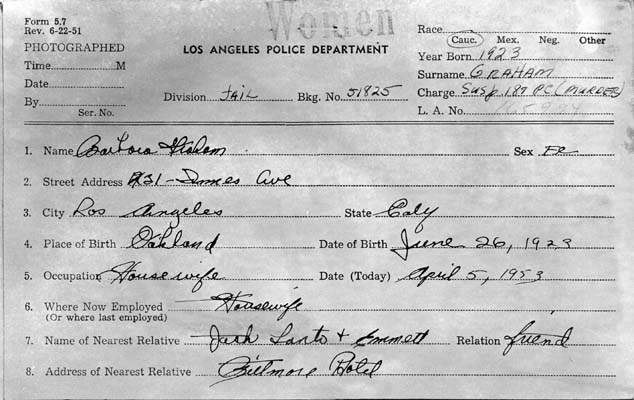 Form 5.7
Rev. 6-22-51
PHOTOGRAPHED
Time M
Date
By
Ser. No.
Women
LOS ANGELES POLICE DEPARTMENT
Division Jail Bkg. No. 51825
Race
Cauc. Mex. Neg. Other
Year Born 1923
Surname GRAHAM
Charge Susp. 187 PC (MURDER)
L. A. No.
1. Name Barbara Graham Sex Fe
2. Street Address Ave
3. City Los Angeles State Caly
4. Place of Birth Oakland Date of Birth June 26, 1923
5. Occupation Housewife Date (Today) April 5, 1953
6. Where Now Employed Housewife
(Or where last employed)
7. Name of Nearest Relative Jack Santo + Emmett Relation friend
8. Address of Nearest Relative Biltmore Hotel